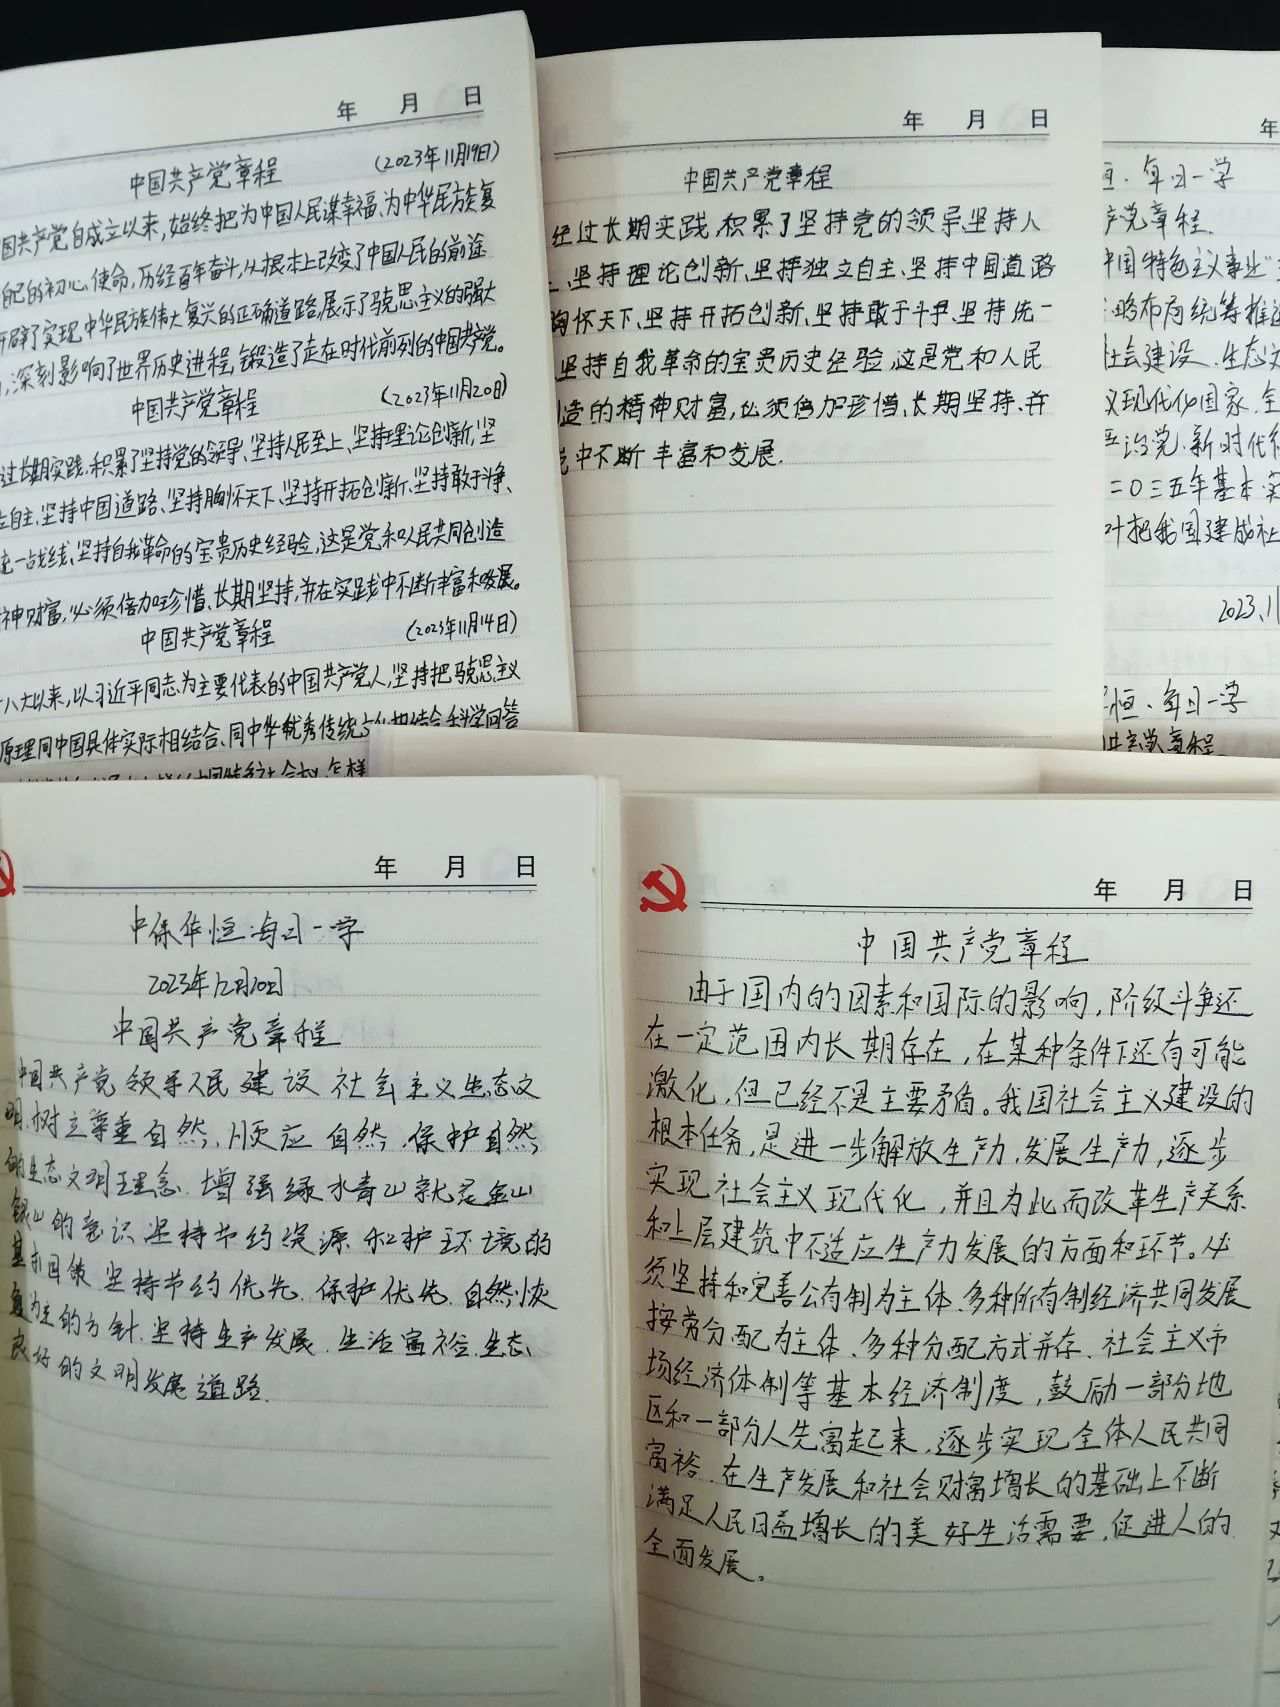 年 月 日
中国共产党章程 (2023年11月19日)
国共产党自成立以来,始终把为中国人民谋幸福、为中华民族复
己的初心使命,历经百年奋斗,从根本上改变了中国人民的前途
开辟了实现中华民族伟大复兴的正确道路,展示了马克思主义的强大
,深刻影响了世界历史进程,锻造了走在时代前列的中国共产党。
中国共产党章程 (2023年11月20日)
过长期实践,积累了坚持党的领导、坚持人民至上、坚持理论创新、坚
立自主、坚持中国道路、坚持胸怀天下、坚持开拓创新、坚持敢于斗争、
统一战线、坚持自我革命的宝贵历史经验,这是党和人民共同创造
神财富,必须倍加珍惜、长期坚持,并在实践中不断丰富和发展。
中国共产党章程 (2023年11月14日)
八大以来,以习近平同志为主要代表的中国共产党人,坚持把马克思主义
原理同中国具体实际相结合、同中华优秀传统文化相结合,科学回答
年 月 日
中国共产党章程
经过长期实践,积累了坚持党的领导、坚持人
、坚持理论创新、坚持独立自主、坚持中国道路
胸怀天下、坚持开拓创新、坚持敢于斗争、坚持统一
坚持自我革命的宝贵历史经验,这是党和人民
造的精神财富,必须倍加珍惜、长期坚持,并
中不断丰富和发展.
年
恒·每日一学
产党章程.
中国特色主义事业"
略布局统筹推进
社会建设、生态文
义现代化国家、全
严治党.新时代
二〇三五年基本实
叶把我国建成社
2023.11
恒·每日一学
共产党章程
年 月 日
中保华恒每日一学
2023年12月20日
中国共产党章程
中国共产党领导人民建设社会主义生态文
明.树立尊重自然,顺应自然,保护自然
的生态文明理念.增强绿水青山就是金山
银山的意识坚持节约资源和护环境的
基本国策坚持节约优先.保护优先.自然恢
复为主的方针.坚持生产发展.生活富裕.生态
良好的文明发展道路.
年 月 日
中国共产党章程
由于国内的因素和国际的影响,阶级斗争还
在一定范围内长期存在,在某种条件下还有可能
激化,但已经不是主要矛盾。我国社会主义建设的
根本任务,是进一步解放生产力,发展生产力,逐步
实现社会主义现代化,并且为此而改革生产关系
和上层建筑中不适应生产力发展的方面和环节。必
须坚持和完善公有制为主体、多种所有制经济共同发展
按劳分配为主体、多种分配方式并存、社会主义市
场经济体制等基本经济制度,鼓励一部分地
区和一部分人先富起来,逐步实现全体人民共同
富裕.在生产发展和社会财富增长的基础上不断
满足人民日益增长的美好生活需要,促进人的
全面发展。